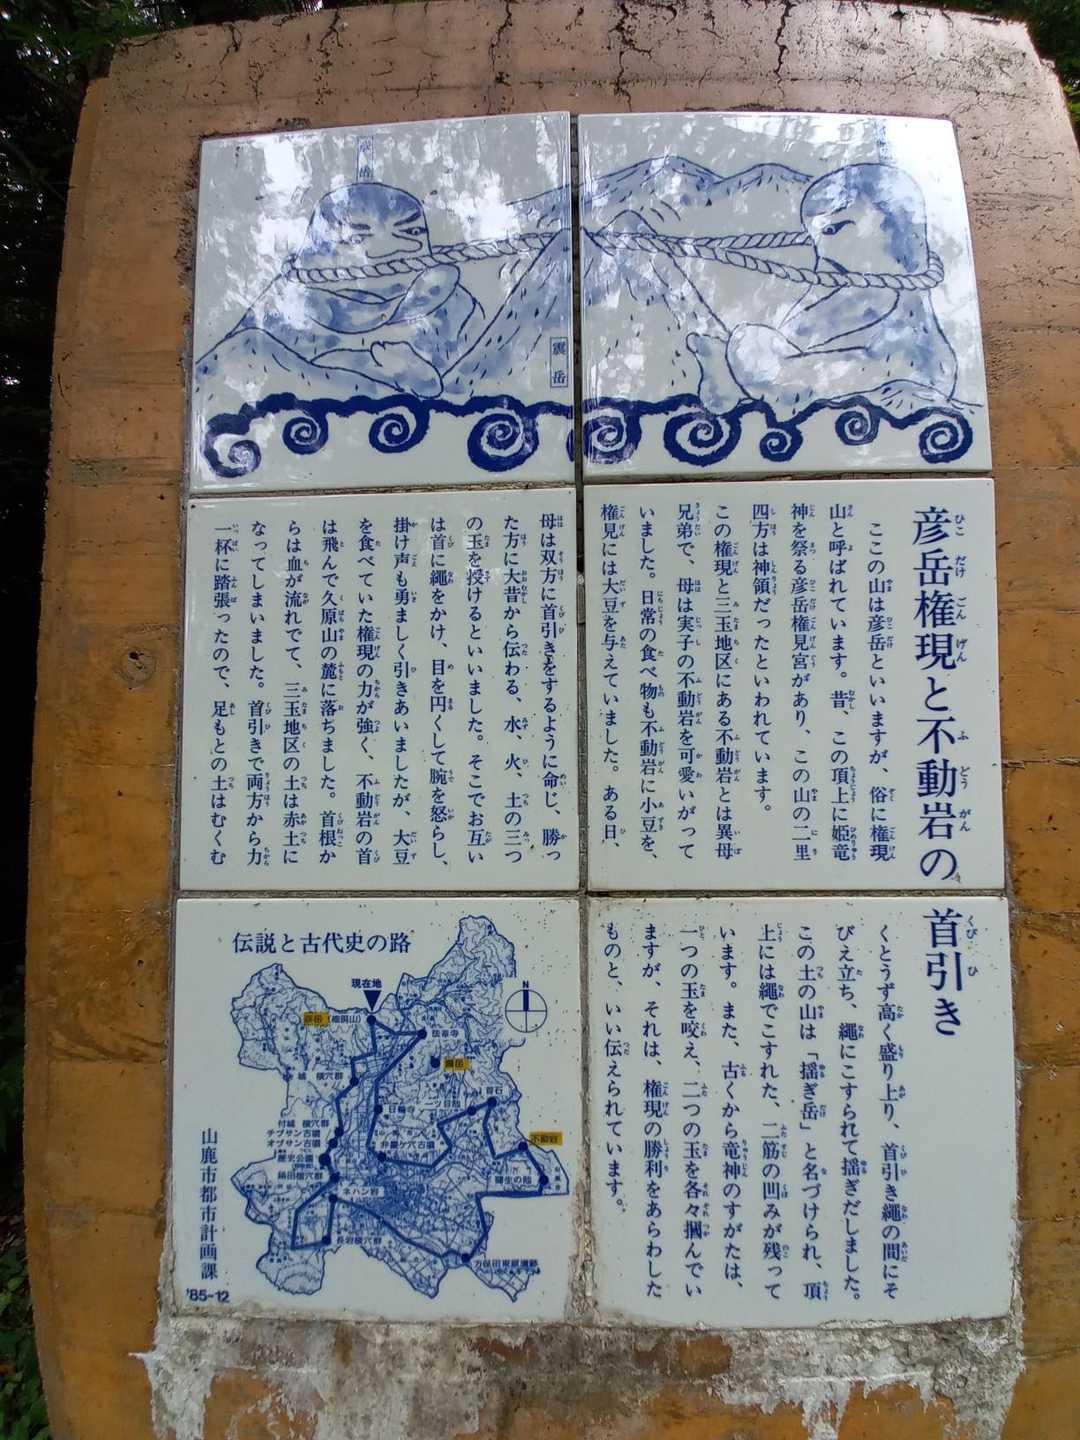 彦岳
震岳
彦岳権現と不動岩の
首引き
ここの山は彦岳といいますが、俗に権現
山と呼ばれています。昔、この頂上に姫竜
神を祭る彦岳権見宮があり、この山の二里
四方は神領だったといわれています。
この権現と三玉地区にある不動岩とは異母
兄弟で、母は実子の不動岩を可愛いがって
いました。日常の食べ物も不動岩に小豆を、
権見には大豆を与えていました。ある日、
母は双方に首引きをするように命じ、勝っ
た方に大昔から伝わる、水、火、土の三つ
の玉を授けるといいました。そこでお互い
は首に縄をかけ、目を円くして腕を怒らし、
掛け声も勇ましく引きあいましたが、大豆
を食べていた権現の力が強く、不動岩の首
は飛んで久原山の麓に落ちました。首根か
らは血が流れでて、三玉地区の土は赤土に
なってしまいました。首引きで両方から力
一杯に踏張ったので、足もとの土はむくむ
くとうず高く盛り上り、首引き縄の間にそ
びえ立ち、縄にこすられて揺ぎだしました。
この土の山は「揺ぎ岳」と名づけられ、頂
上には縄でこすれた、二筋の凹みが残って
います。また、古くから竜神のすがたは、
一つの玉を咬え、二つの玉を各々摑んでい
ますが、それは、権現の勝利をあらわした
ものと、いい伝えられています。
伝説と古代史の路
現在地
N
彦岳(権現山)
震岳
日輪寺
付城 横穴群
チブサン古墳
オブサン古墳
歴史公園
鍋田横穴群
弁慶ケ穴古墳
不動岩
ネハン岩
長岩横穴群
方保田東原遺跡
山鹿市都市計画課
'85-12